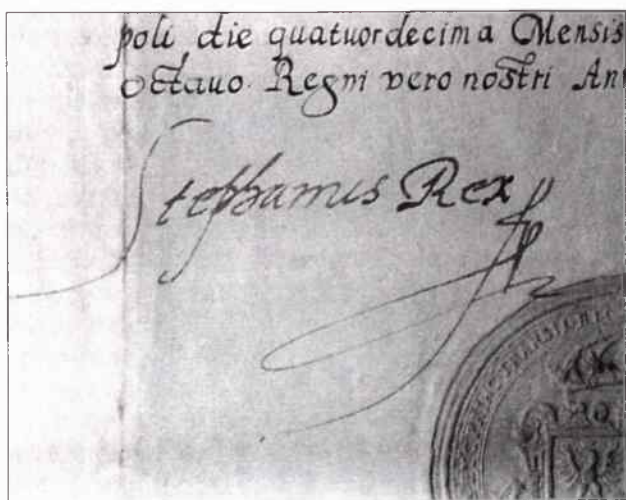 poli die quatuordecima Mensis
octauo. Regni vero nostri An
Stephanus Rex